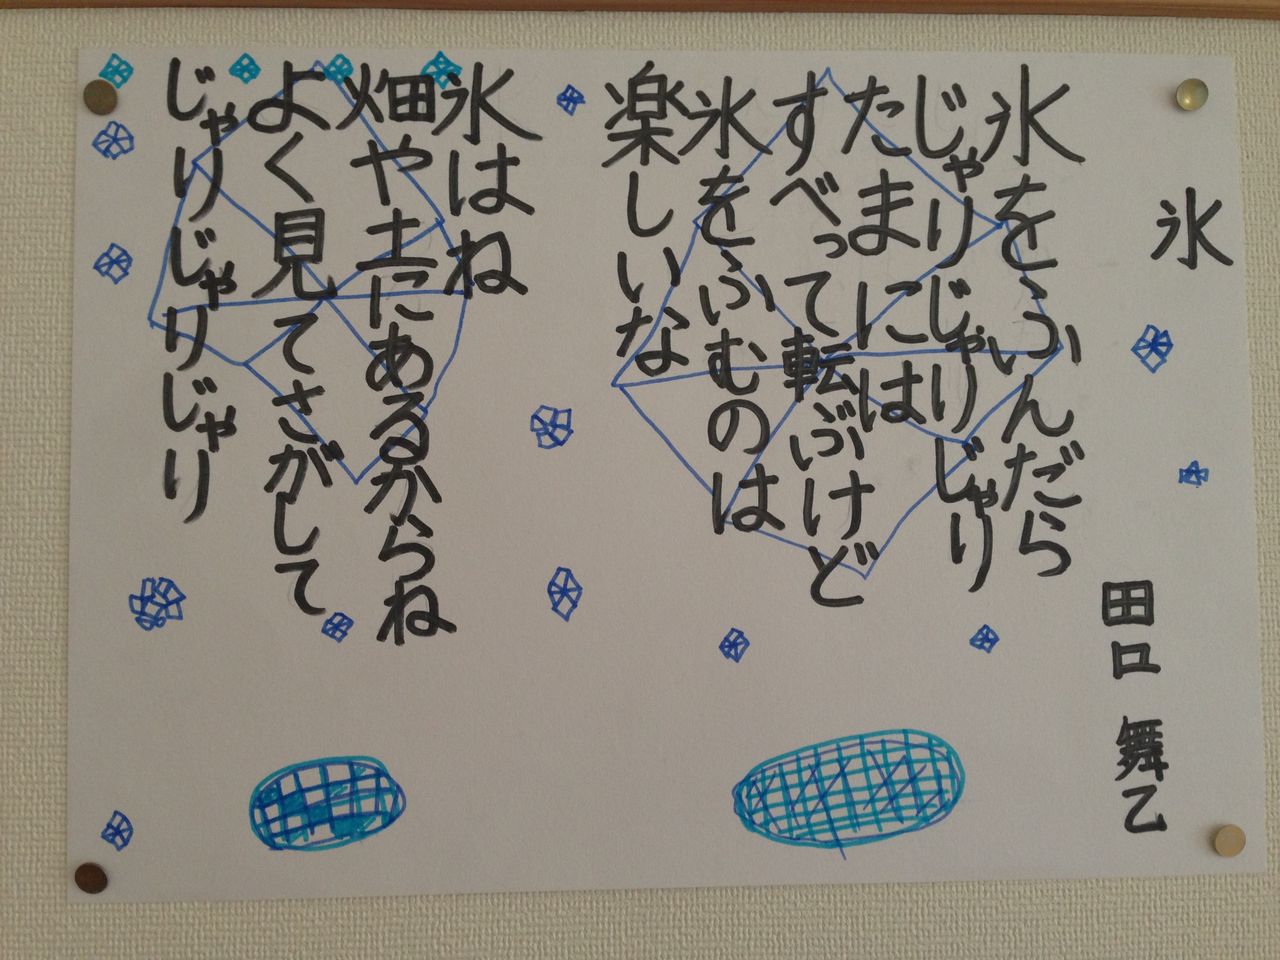 氷
田口 舞乙
氷をふんだら
じゃりじゃりじゃり
たまにはは
すべって転ぶけど
氷をふむのは
楽しいな
氷はね
畑や土にあるからね
よく見てさがして
じゃりじゃりじゃり